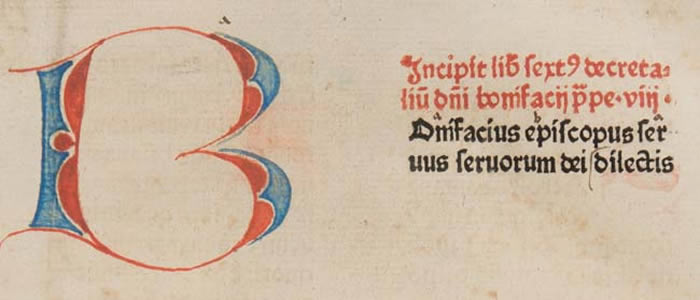 B
Incipit lib̃ sextꝰ decreta⸗
liũ dñi bonifacij p̃pe·viij·
Onifacius ep̃iscopus ser
uus seruorum dei dilectis